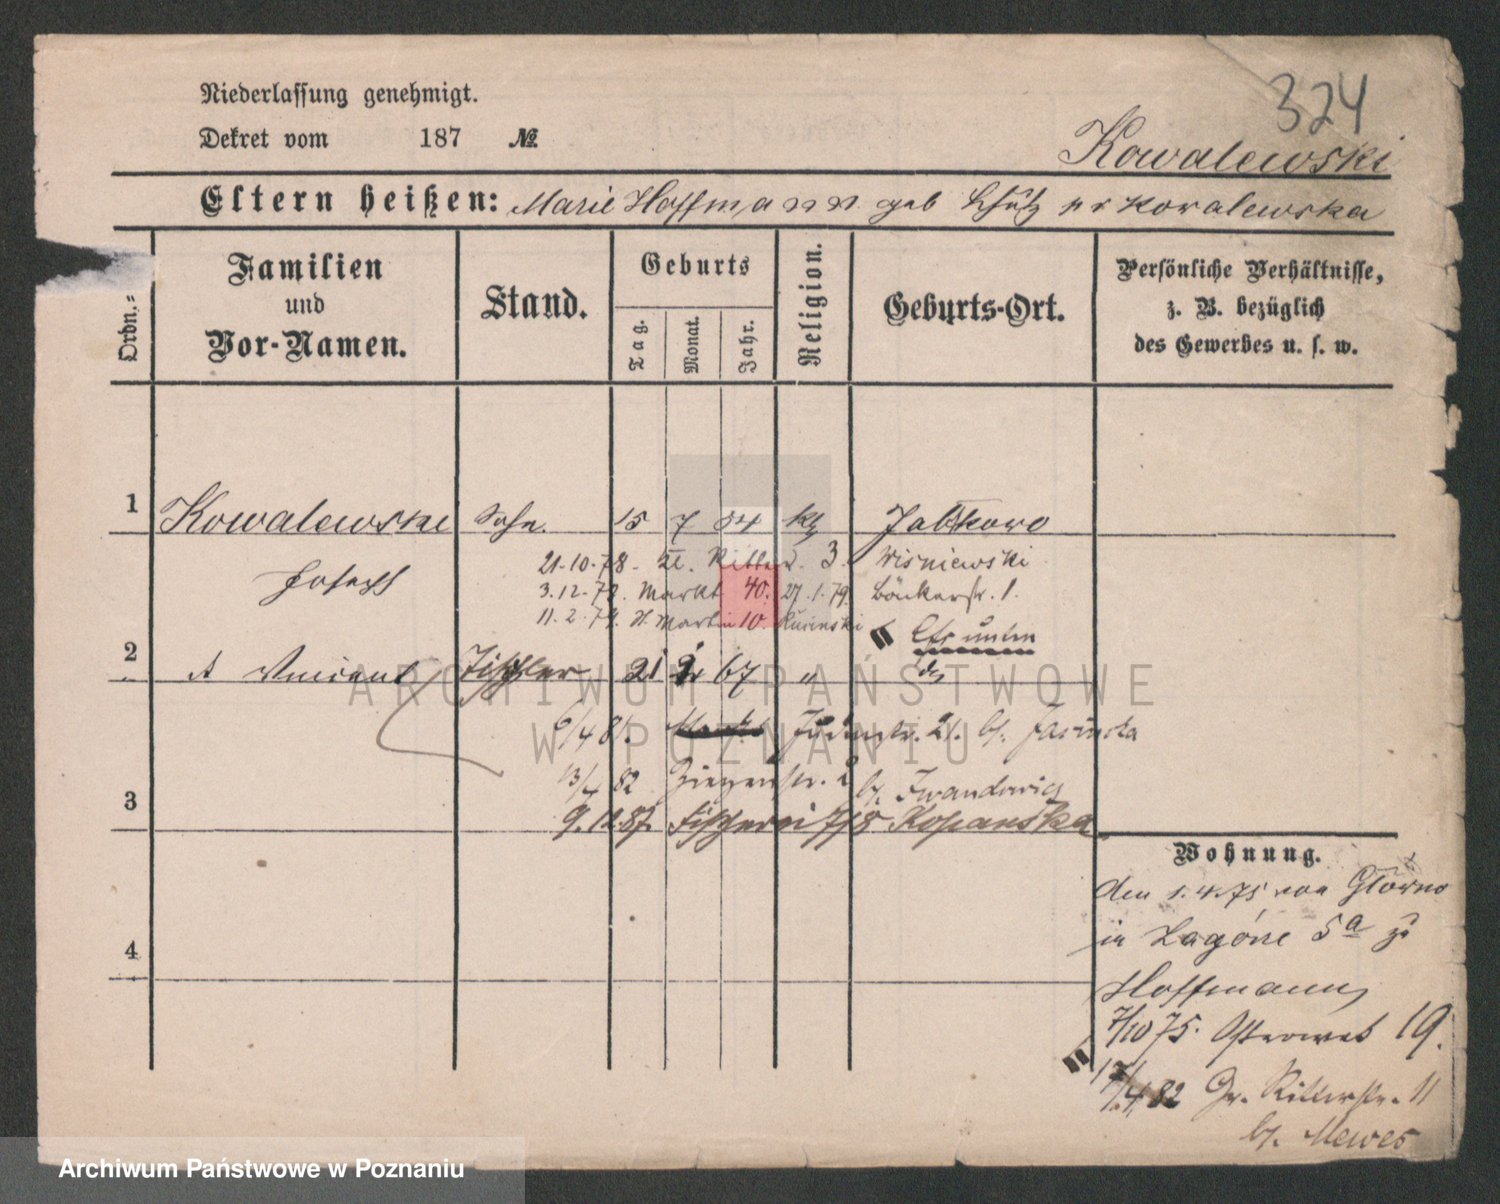 324
Niederlassung genehmigt.
Dekret vom 187 №
Kowalewski
Eltern heißen: Marie Hoffmann geb Kowalewska
Ordn.=
Familien
und
Vor-Namen.
Stand.
Geburts
Tag.
Monat.
Jahr.
Religion.
Geburts-Ort.
Persönliche Verhältnisse,
z. B. bezüglich
des Gewerbes u. s. w.
1 Kowalewski Sohn. 15 7 54 kth Jabłkowo
Joseph
21-10-78. Kl. Ritterstr. 3. Wisniewski
3.12.78. Markt 40. 27.1.79. Bäckerstr. 1.
11.2.79. St. Martin 10.
2 Vincent Tischler 21 67 "
6/4 81. Judenstr. 21. b/.
13/4 82 Ziegenstr. 2 b/.
3
9.12.87. Fischerei 7/8 Kopanska
Wohnung.
den 1.4.75 von Głowno
in Lagóne 5a zu
Hoffmann
7/10 75. Ostrowek 19.
4
17/4 82 Gr. Ritterstr. 11
b/. Mewes
ARCHIWUM PAŃSTWOWE
W POZNANIU
Archiwum Państwowe w Poznaniu